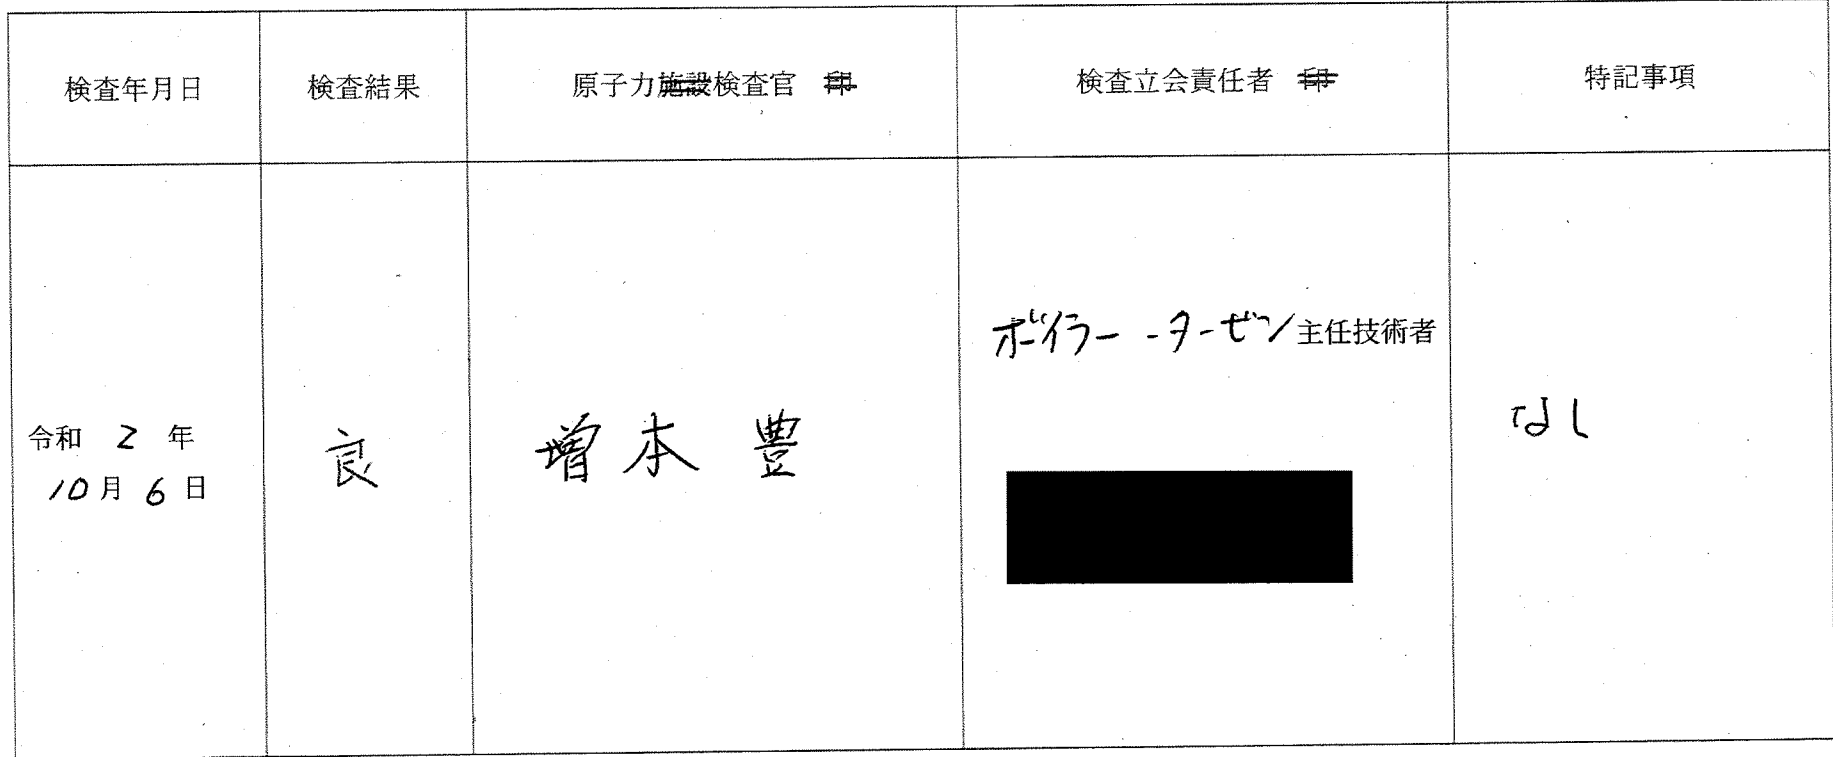 検査年月日
検査結果
原子力施設検査官 印
検査立会責任者 印
特記事項
令和 2 年
10月 6 日
良
増本 豊
ボイラー・タービン主任技術者
なし